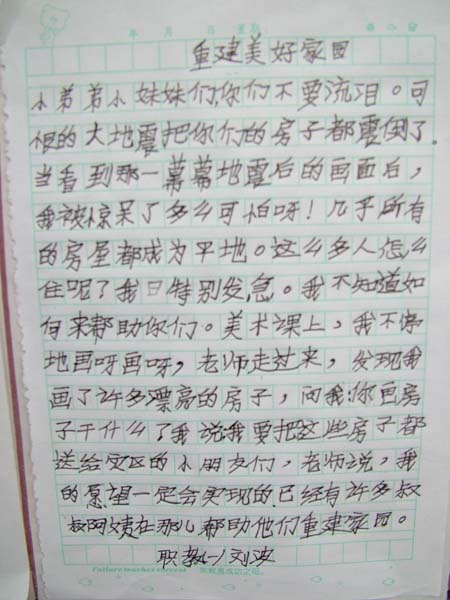 年 月 日 星期
重建美好家园
小弟弟小妹妹们,你们不要流泪。可
恨的大地震把你们的房子都震倒了.
当看到那一幕幕地震后的画面后,
我被惊呆了多么可怕呀!几乎所有
的房屋都成为平地。这么多人怎么
住呢?我日特别发急。我不知道如
何来帮助你们。美术课上,我不停
地画呀画呀,老师走过来,发现我
画了许多漂亮的房子,问我:你画房
子干什么?我说我要把这些房子都
送给灾区的小朋友们,老师说,我
的愿望一定会实现的.已经有许多叔
叔阿姨在那儿帮助他们重建家园。
职教 刘
Future teacher success